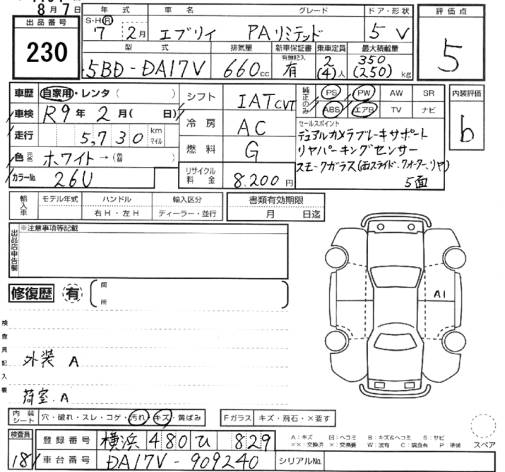 8月7日
出品番号 230
年式 車名 グレード ドア・形状 評価点
S・H・R 7年 2月 エブリイ PAリミテッド 5 V 5
型式 排気量 新車保証書 乗車定員 最大積載量
有無記入
5BD-DA17V 660cc 有 2(4)人 350(250)kg
車歴 自家用・レンタ( ) シフト IAT CVT 純正のみ PS PW AW SR 内装評価
車検 R9年 2月( 日) ABS エアB TV ナビ b
走行 5,730 km マイル 冷房 AC セールスポイント
デュアルカメラブレーキサポート
色 ホワイト→( ) 燃料 G リヤパーキングセンサー
スモークガラス(両スライド、クォーター、リヤ)
カラーNo. 26U リサイクル料金 8,200円 5面
輸入車 モデル年式 ハンドル 輸入区分 書類有効期限
年 右H・左H ディーラー・並行 月 日迄
出品店申告欄 ※注意事項等記載
修復歴 有 箇所
A1
検査員記入欄
外装 A
荷室 A
内装シート 穴・破れ・スレ・コゲ・汚れ・キズ・黄ばみ Fガラス キズ・飛石・×要す スペア
検査員 登録番号 横浜 480 ひ 829
A:キズ B:キズ&ヘコミ S:サビ
181 車台番号 DA17V-909240 シリアルNo.